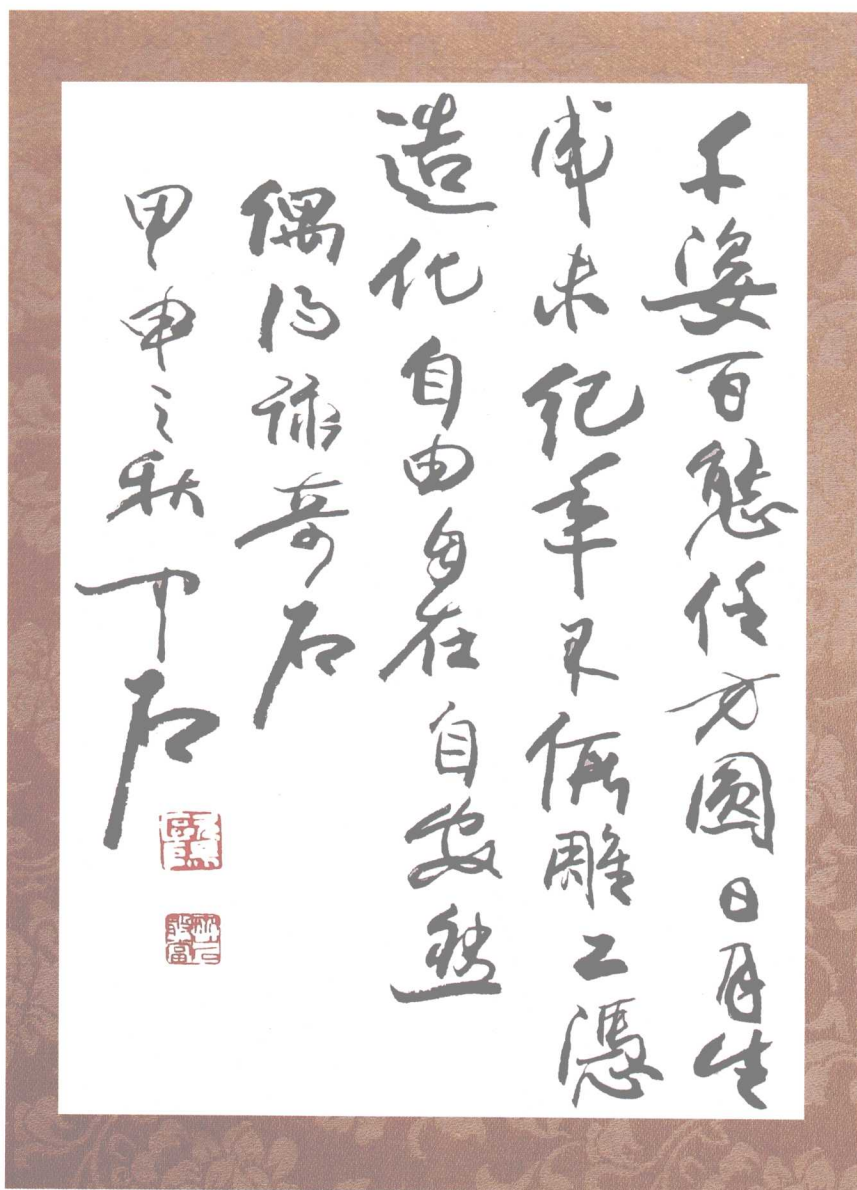 千姿百態任方圓日月生
成未紀年不假雕工憑
造化自由自在自安然
偶得詠奇石
甲申之秋中石